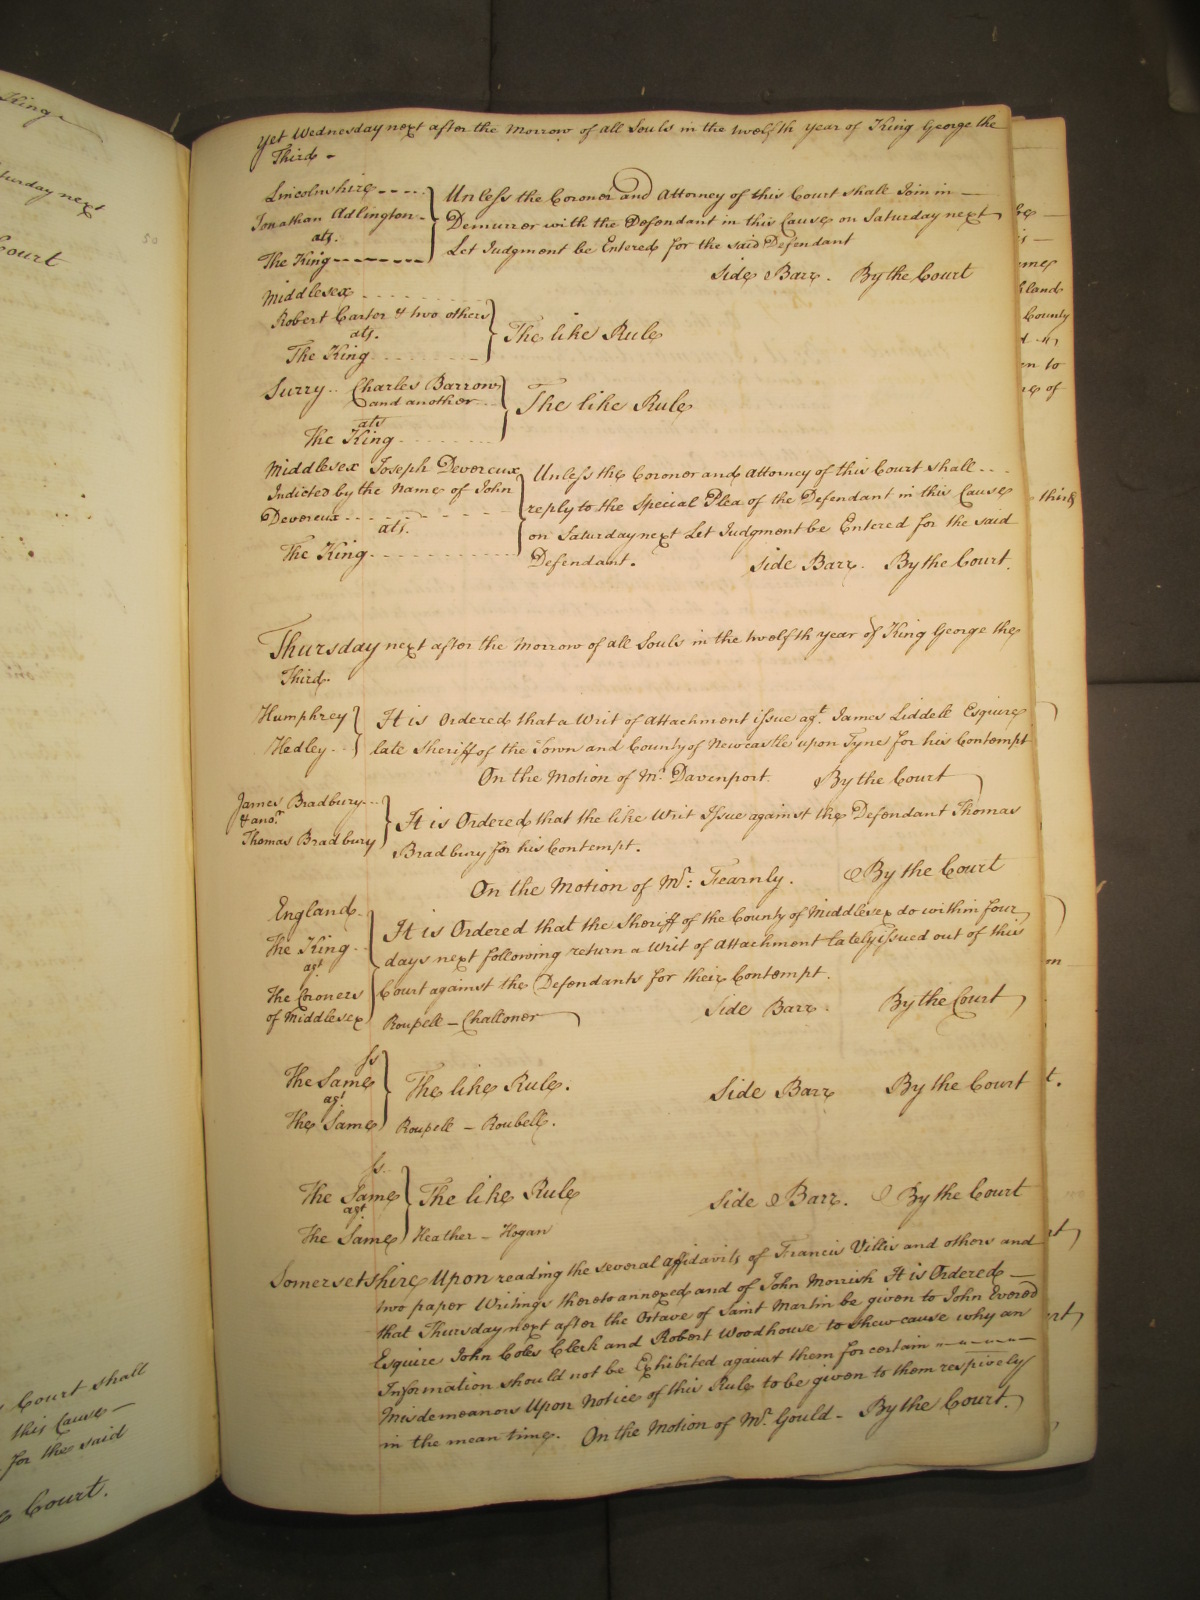 Yet Wednesday next after the Morrow of all Souls in the twelfth year of King George the
Third -
Lincolnshire
Jonathan Adlington
ats.
The King
Unless the Coroner and Attorney of this Court shall Join in
Demurrer with the Defendant in this Cause on Saturday next
Let Judgment be Entered for the said Defendant
Side Barr. By the Court
Middlesex
Robert Carter & two others
ats.
The King
The like Rule
Surry Charles Barrow
and another
ats
The King
The like Rule
Middlesex Joseph Devereux
Indicted by the Name of John
Devereux
ats.
The King
Unless the Coroner and Attorney of this Court shall
reply to the Special Plea of the Defendant in this Cause
on Saturday next Let Judgment be Entered for the said
Defendant. Side Barr. By the Court.
Thursday next after the Morrow of all Souls in the twelfth year of King George the
Third.
Humphrey
Hedley
It is Ordered that a Writ of Attachment issue agt. James Liddell Esquire
late Sheriff of the Town and County of Newcastle upon Tyne for his Contempt
On the Motion of Mr. Davenport. By the Court
James Bradbury
& anor.
Thomas Bradbury
It is Ordered that the like Writ Issue against the Defendant Thomas
Bradbury for his Contempt.
On the Motion of Mr: Fearnly. By the Court
England
The King
agt
The Coroners
of Middlesex
It is Ordered that the Sheriff of the County of Middlesex do within four
days next following return a Writ of Attachment lately issued out of this
Court against the Defendants for their Contempt.
Roupell - Challoner
Side Barr. By the Court
Ss
The Same
agt
The Same
The like Rule. Side Barr By the Court
Roupell - Roubell.
Ss
The Same
agt
The Same
The like Rule Side Barr. By the Court
Heather - Hogan
Somersetshire Upon reading the several affidavits of Francis Villis and others and
two paper Writings thereto annexed and of John Morrish It is Ordered
that Thursday next after the Octave of Saint Martin be given to John Evered
Esquire John Coles Clerk and Robert Woodhouse to shew cause why an
Information should not be Exhibited against them for certain
Misdemeanors Upon Notice of this Rule to be given to them respively
in the mean time. On the Motion of Mr. Gould - By the Court.
King
Saturday next
Court
50
Court shall
this Cause
for the said
Court.
County
third